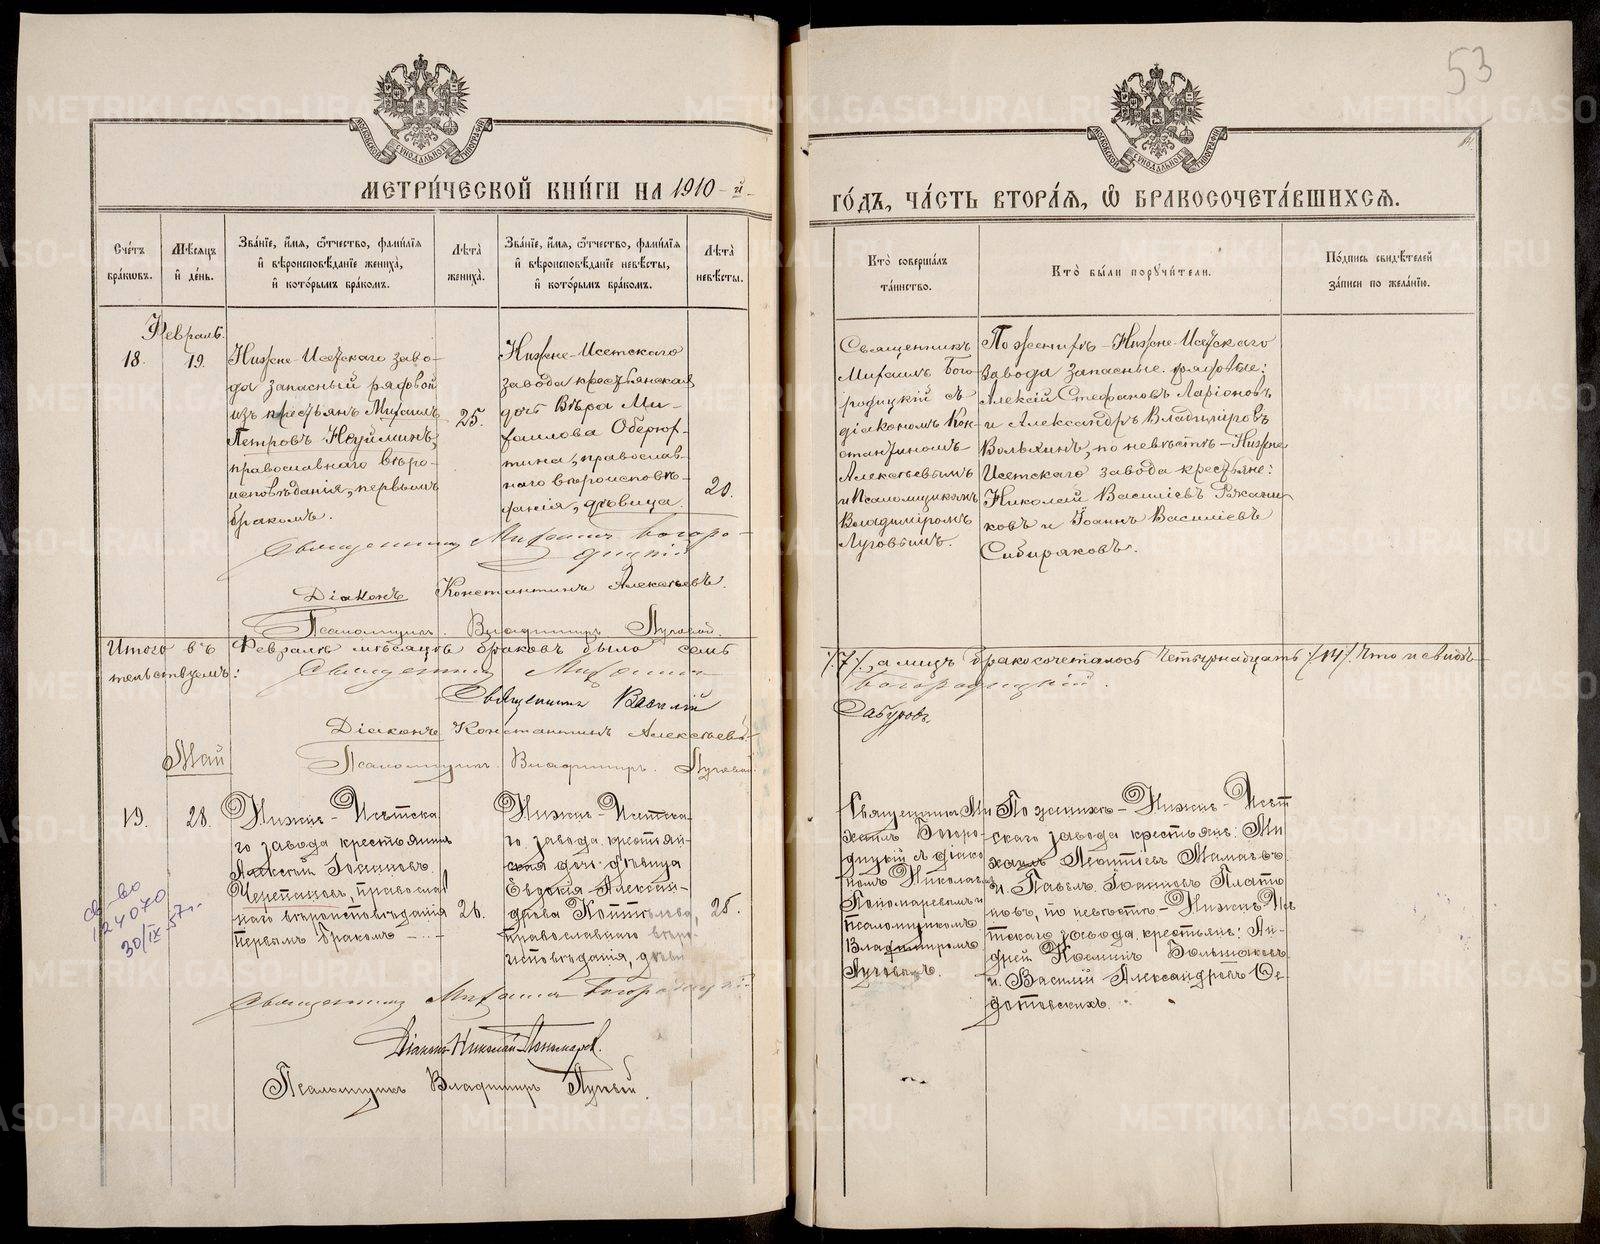 53
МЕТРИ́ЧЕСКОЙ КНИ́ГИ НА 1910-й
ГО́ДЪ, ЧА́СТЬ ВТОРА́Я, Ѡ БРАКОСОЧЕТА́ВШИХСЯ.
Сче́тъ бра́ковъ.
Мѣ́сяцъ и҆ де́нь.
Зва́нїе, и҆́мя, ѻ҆́тчество, фами́лїя
и҆ вѣроисповѣ́данїе жениха̀,
и҆ кото́рымъ бра́комъ.
Лѣта̀ жениха̀.
Зва́нїе, и҆́мя, ѻ҆́тчество, фами́лїя
и҆ вѣроисповѣ́данїе невѣ́сты,
и҆ кото́рымъ бра́комъ.
Лѣта̀ невѣ́сты.
Кто̀ соверша́лъ
та́инство.
Кто̀ бы́ли поручи́тели.
По́дпись свидѣ́телей
за́писи по жела́нїю.
Февраль.
18.
19.
Нижне-Исетскаго заво-
да запасный рядовой
изъ крестьянъ Михаилъ
Петровъ Неуйминъ,
православнаго вѣро-
исповѣданія, первымъ
бракомъ.
25.
Нижне-Исетскаго
завода крестьянская
дочь Вѣра Ми-
хаилова Оберюх-
тина, православ-
наго вѣроисповѣ-
данія, дѣвица.
20.
Священникъ
Михаилъ Бого-
родицкій съ
діакономъ Кон-
стантиномъ
Алексѣевымъ
и Псаломщикомъ
Владиміромъ
Луговымъ.
По женихѣ-Нижне-Исетскаго
завода запасные рядовые:
Алексій Стефановъ Ларіоновъ
и Александръ Владиміровъ
Волыхинъ, по невѣстѣ-Нижне
Исетскаго завода крестьяне:
Николай Василіевъ Рожени-
ковъ и Іоаннъ Василіевъ
Сибиряковъ.
Священникъ Михаилъ Богоро-
дицкій
Діаконъ Константинъ Алексѣевъ.
Псаломщикъ Владиміръ Луговой.
Итого въ Февралѣ мѣсяцѣ браковъ было семь /7/, а лицъ бракосочеталось четырнадцать /14/. Что и свидѣ-
тельствуемъ: Священникъ Михаилъ Богородицкій.
Священникъ Василій Сабуровъ
Діаконъ Константинъ Алексѣевъ
Псаломщикъ Владиміръ Луговой.
Май
19.
28.
Нижне-Исѣтска
го завода крестьянинъ
Алексій Іоанновъ
Черепановъ, православ
наго вѣроисповѣданія
первымъ бракомъ
26.
Нижне-Исѣтска-
го завода крестьян-
ская дочь-дѣвица
Евдокія Алексан-
дрова
православнаго вѣро-
исповѣданія,
25.
Священникъ Ми
хаилъ Богоро-
дицкій съ діако
номъ Николаемъ
Пономаревымъ и
псаломщикомъ
Владиміромъ
Луговымъ.
По женихѣ-Нижне-Исѣт
скаго завода крестьяне: Ми
хаилъ Леонтіевъ Мамаевъ
и Павелъ Іоанновъ Плато
новъ, по невѣстѣ-Нижне-Исѣ
тскаго завода крестьяне: Ан-
дрей Косминъ Большаковъ
и Василій Александровъ Ѳе-
дотовскихъ.
св-во
124070
30/IX 57г.
Священникъ Михаилъ Богородицкій
Діаконъ Николай Пономаревъ.
Псаломщикъ Владиміръ Луговой.
METRIKI.GASO-URAL.RU